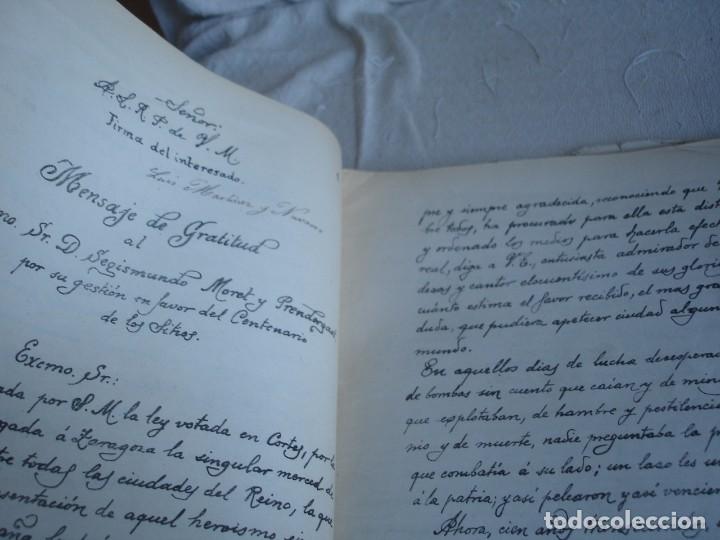 Señor:
A. L. R. P. de V. M.
Firma del interesado.
Luis Martínez y
Mensaje de Gratitud
al
mo. Sr. D. Segismundo Moret y Prendergast
por su gestión en favor del Centenario
de los Sitios.
Excmo. Sr.:
ada por S. M. la ley votada en Cortes, por la
gada á Zaragoza la singular merced de
tre todas las ciudades del Reino, la que
esentación de aquel heroismo
pre y siempre agradecida, reconociendo que
bre todos, ha procurado para ella esta dist
y ordenado los medios para hacerla efect
real, diga a V. E., entusiasta admirador de
dezas y cantor elocuentísimo de sus glori
cuánto estima el favor recibido, el mas gra
duda, que pudiera apetecer ciudad algun
mundo.
En aquellos dias de lucha desespera
de bombas sin cuento que caian y de min
que explotaban, de hambre y pestilenci
nio y de muerte, nadie preguntaba la p
que combatía á su lado; un laso les un
á la patria; y así pelearon y así vencier
Ahora, cien años
todocoleccion.net